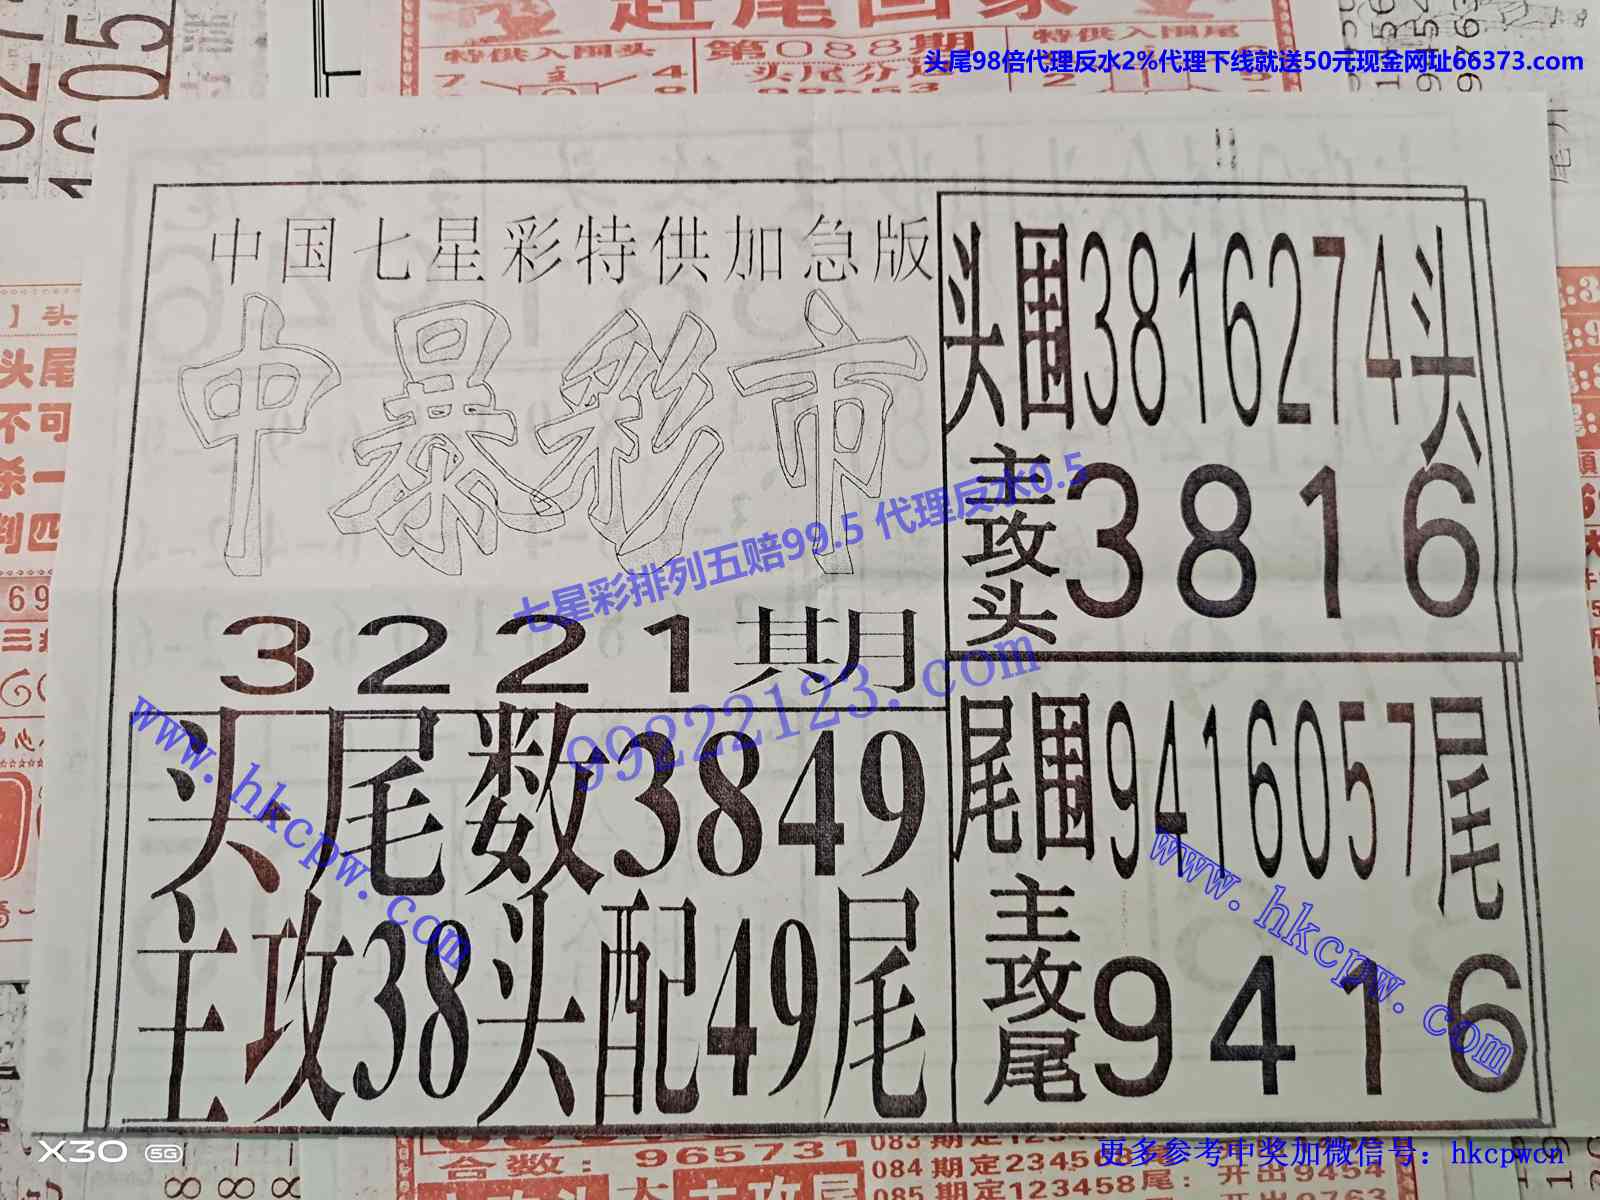 赶尾回家
特供入围头 第088期 特供入围尾
头尾98倍代理反水2%代理下线就送50元现金网址66373.com
中国七星彩特供加急版
中暴彩市
3221期
头尾数3849
主攻38头配49尾
头围3816274头
主攻头3816
尾围9416057尾
主攻尾9416
七星彩排列五赔99.5 代理反水0.5
99222123.com
www.hkcpw.com
www.hkcpw.com
头尾
不可
杀一
判四
69
X30 5G
合数：965731
084期定234568尾：开出9454
085期定123458尾：
更多参考中奖加微信号：hkcpwcn